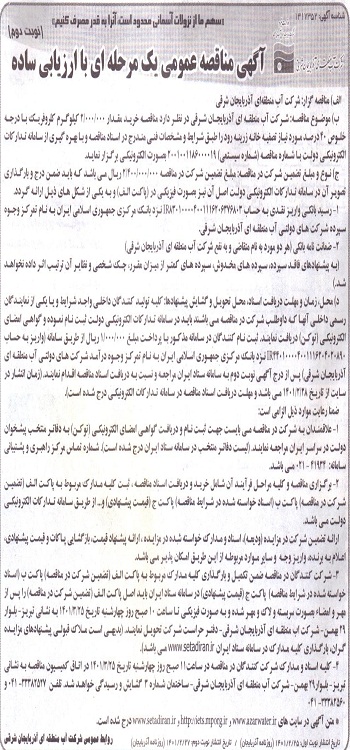 شناسه آگهی: ۱۳۱۷۳۵۳
«سهم ما از نزولات آسمانی محدود است، آنرا به هدر مصرف نکنیم»
(نوبت دوم)
آگهی مناقصه عمومی یک مرحله ای با ارزیابی ساده
الف) مناقصه گزار: شرکت آب منطقه‌ای آذربایجان شرقی
ب) موضوع مناقصه: شرکت آب منطقه ای آذربایجان شرقی در نظر دارد مناقصه خرید بمقدار ۲/۰۰۰/۰۰۰ کیلوگرم کلروفریک با درجه
خلوص ۴۰ درصد مورد نیاز تصفیه خانه زرینه رود را طبق شرایط و مشخصات فنی مندرج در اسناد مناقصه و با بهره گیری از سامانه تدارکات
الکترونیکی دولت با شماره مناقصه (شماره سیستمی) بصورت الکترونیکی برگزار نماید.
ج) نوع و مبلغ تضمین شرکت در مناقصه: مبلغ تضمین شرکت در مناقصه ریال می باشد که باید ضمن درج و بارگذاری
تصویر آن در سامانه تدارکات الکترونیکی دولت اصل آن نیز بصورت فیزیکی در (پاکت الف) و به یکی از شکل های ذیل ارائه گردد.
۱- رسید بانکی واریز نقدی به حساب نزد بانک مرکزی جمهوری اسلامی ایران به نام تمرکز وجوه
سپرده شرکت های دولتی آب منطقه ای آذربایجان شرقی
۲- ضمانت نامه بانکی (هر دو مورد به نام متقاضی و به نفع شرکت آب منطقه ای آذربایجان شرقی)
(به پیشنهادهای فاقد سپرده، سپرده های مخدوش، سپرده های کمتر از میزان مقرر، چک شخصی و نظایر آن ترتیب اثر داده نخواهد
شد.)
د) محل، زمان و مهلت دریافت اسناد، محل تحویل و گشایش پیشنهادها: کلیه تولید کنندگان داخلی واجد شرایط و یا یکی از نمایندگان
رسمی داخلی آنها که داوطلب شرکت در مناقصه می باشند باید در سامانه تدارکات الکترونیکی دولت ثبت نام نموده و گواهی امضای
الکترونیکی (توکن) دریافت نمایند. ثبت نام کنندگان در سامانه مذکور با پرداخت مبلغ ۱/۰۰۰/۰۰۰ ریال از طریق سامانه (واریز به حساب
نزد بانک مرکزی جمهوری اسلامی ایران به نام تمرکز وجوه درآمد شرکت های دولتی آب منطقه ای
آذربایجان شرقی) پس از درج آگهی نوبت دوم به سامانه ستاد ایران مراجعه و نسبت به دریافت اسناد مناقصه اقدام نمایند. (زمان انتشار در
سایت از تاریخ ۱۴۰۱/۲/۲۸ می باشد و مهلت دریافت اسناد مناقصه در سامانه تدارکات الکترونیکی درج شده است).
ضمنا رعایت موارد ذیل الزامی است:
۱- علاقمندان به شرکت در مناقصه می بایست جهت ثبت نام و دریافت گواهی امضای الکترونیکی (توکن) به دفاتر منتخب پیشخوان
دولت در سراسر ایران مراجعه نمایند. (لیست دفاتر منتخب در سامانه ستاد ایران درج شده است). شماره تماس مرکز راهبری و پشتیبانی
سامانه: ۴۱۹۳۴ - ۰۲۱ می باشد.
۲- برگزاری مناقصه و کلیه مراحل فرآیند آن شامل خرید و دریافت اسناد مناقصه، ثبت کلیه مدارک مربوط به پاکت الف (تضمین
شرکت در مناقصه) پاکت ب (اسناد خواسته شده در شرایط مناقصه) پاکت ج (قیمت پیشنهادی) و... از طریق سامانه تدارکات الکترونیکی
دولت می باشد.
ارائه تضمین شرکت در مزایده (ودیعه)، اسناد و مدارک خواسته شده در مزایده، ارائه پیشنهاد قیمت، بازگشایی پاکات و قیمت پیشنهادی،
اعلام به برنده، واریز وجه و سایر موارد مربوطه از این طریق امکان پذیر می باشد.
۳- شرکت کنندگان در مناقصه ضمن تکمیل و بارگذاری کلیه مدارک مربوط به پاکت الف (تضمین شرکت در مناقصه) پاکت ب (اسناد
خواسته شده در شرایط مناقصه) پاکت ج (قیمت پیشنهادی) در سامانه ستاد ایران باید اصل پاکت الف (تضمین شرکت در مناقصه) را پس از
مهر و امضاء بصورت بسته و لاک و مهر شده و به صورت فیزیکی تا ساعت ۱۰ صبح روز چهارشنبه تاریخ ۱۴۰۱/۳/۲۵ به نشانی تبریز- بلوار
۲۹ بهمن- شرکت آب منطقه ای آذربایجان شرقی- دفتر حراست شرکت تحویل نمایند. (بدیهی است ملاک قبولی پیشنهادهای مزایده
گران، بارگذاری کلیه مدارک در سامانه ستاد ایران www.setadiran.ir می باشد).
۴- کلیه اسناد و مدارک شرکت کنندگان در مناقصه در ساعت ۱۱ صبح روز چهارشنبه تاریخ ۱۴۰۱/۳/۲۵ در اتاق کمیسیون مناقصه به نشانی
تبریز- بلوار ۲۹ بهمن- شرکت آب منطقه ای آذربایجان شرقی- ساختمان شماره ۳ گشایش و رسیدگی خواهد شد. تلفن
* متن آگهی در سایت های www.azarwater.ir و http://iets.mporg.ir و www.setadiran.ir درج شده است.
روابط عمومی شرکت آب منطقه ای آذربایجان شرقی
تاریخ انتشار نوبت اول: ۱۴۰۱/۲/۲۵ (روزنامه آذربایجان) تاریخ انتشار نوبت دوم: ۱۴۰۱/۲/۲۷ (روزنامه آذربایجان)